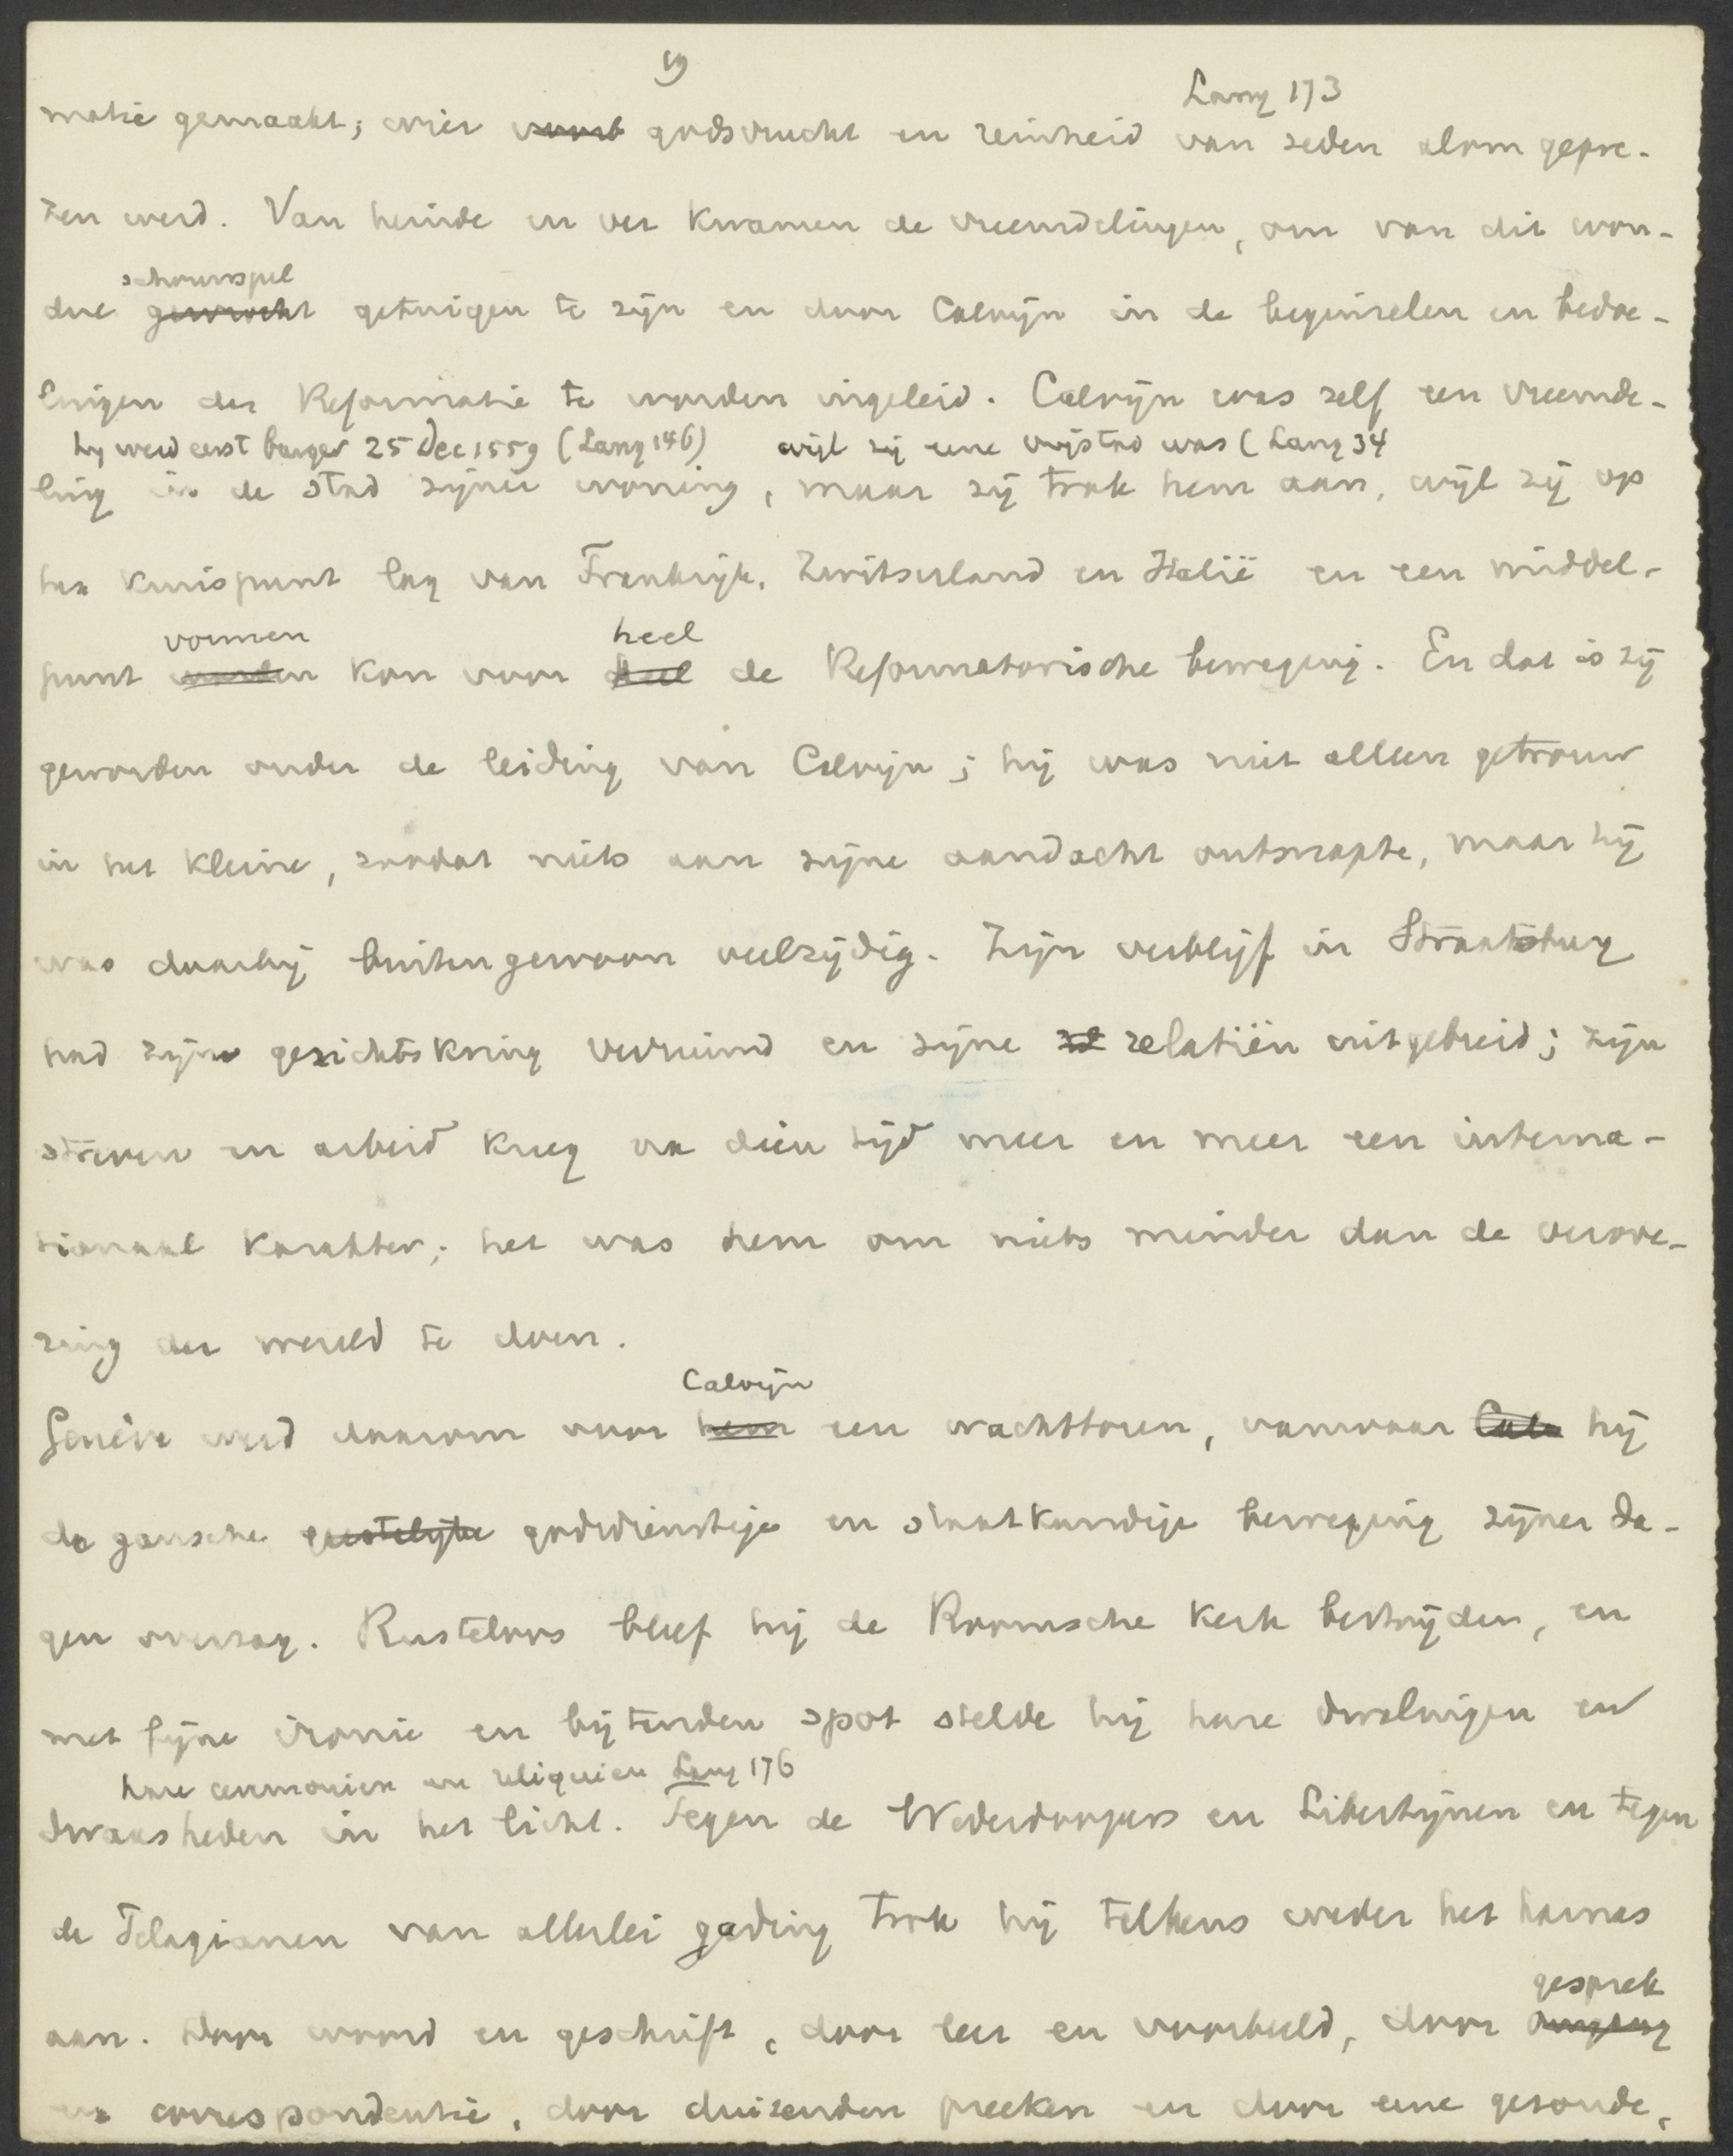 19
Lang 173
matie gemaakt; wier voorb godsvrucht en reinheid van zeden alom gepre-
zen werd. Van heinde en ver kwamen de vreemdelingen, om van dit won-
schouwspel
dre gewrocht getuigen te zijn en door Calvijn in de beginselen en bedoe-
lingen der Reformatie te worden ingeleid. Calvijn was zelf een vreemde-
hy werd eerst burger 25 Dec 1559 (Lang 146) wijl zij eene vrijstad was (Lang 34
ling in de stad zijner woning, maar zij trok hem aan, wijl zij op
het kruispunt lag van Frankrijk, Zwitserland en Italië en een middel-
vormen heel
punt worden kon voor heel de Reformatorische beweging. En dat is zij
geworden onder de leiding van Calvijn; hij was niet alleen getrouw
in het kleine, zoodat niets aan zijne aandacht ontsnapte, maar hij
was daarbij buitengewoon veelzijdig. Zijn verblijf in Straatsburg
had zijn gezichtskring verruimd en zijne rel relatiën uitgebreid; zijn
streven en arbeid kreeg na dien tijd meer en meer een interna-
tionaal karakter; het was hem om niets minder dan de verove-
ring der wereld te doen.
Calvijn
Genève werd daarom voor hem een wachttoren, vanwaar Calv hij
de gansche geestelijke godsdienstige en staatkundige beweging zijner da-
gen overzag. Rusteloos bleef hij de Roomsche Kerk bestrijden, en
met fijne ironie en bijtenden spot stelde hij hare dwalingen en
hare ceremonien en reliquien Lang 176
dwaasheden in het licht. Tegen de Wederdoopers en Libertijnen en tegen
de Pelagianen van allerlei gading trok hij telkens weder het harnas
gesprek
aan. Door woord en geschrift, door leer en voorbeeld, door omgang
en correspondentie, door duizenden preeken en door eene gezonde,